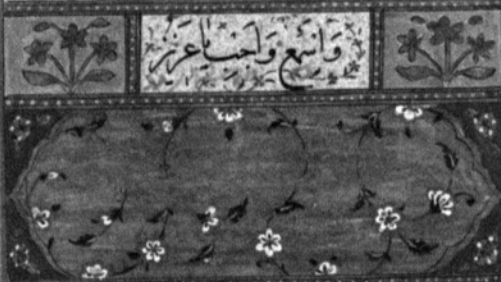 وَاسْمَعْ وَاَجِبْ يَا عَزِيزُ